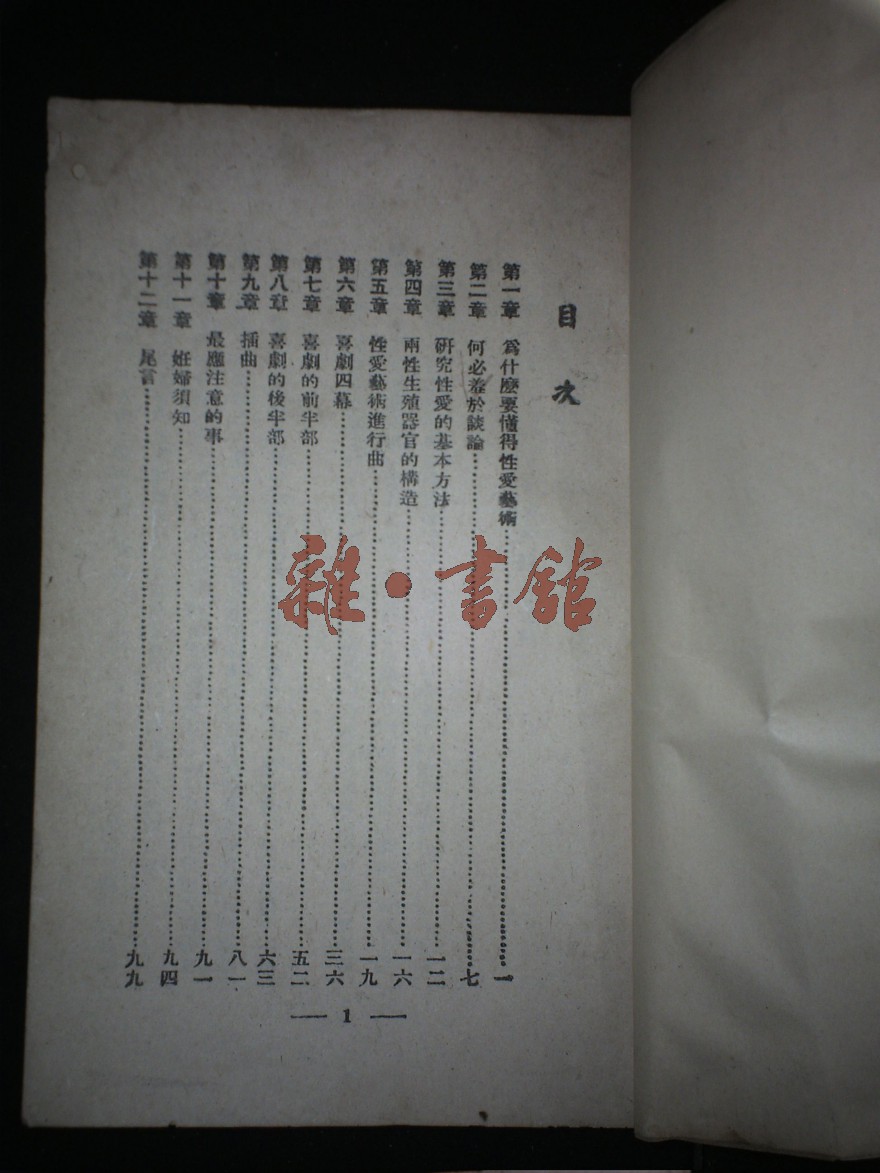 目次
第一章 爲什麼要懂得性愛藝術……一
第二章 何必羞於談論……七
第三章 研究性愛的基本方法……一二
第四章 兩性生殖器官的構造……一六
第五章 性愛藝術進行曲……一九
第六章 喜劇四幕……三六
第七章 喜劇的前半部……五二
第八章 喜劇的後半部……六三
第九章 插曲……八一
第十章 最應注意的事……九一
第十一章 妊婦須知……九四
第十二章 尾言……九九
— 1 —
雜·書館